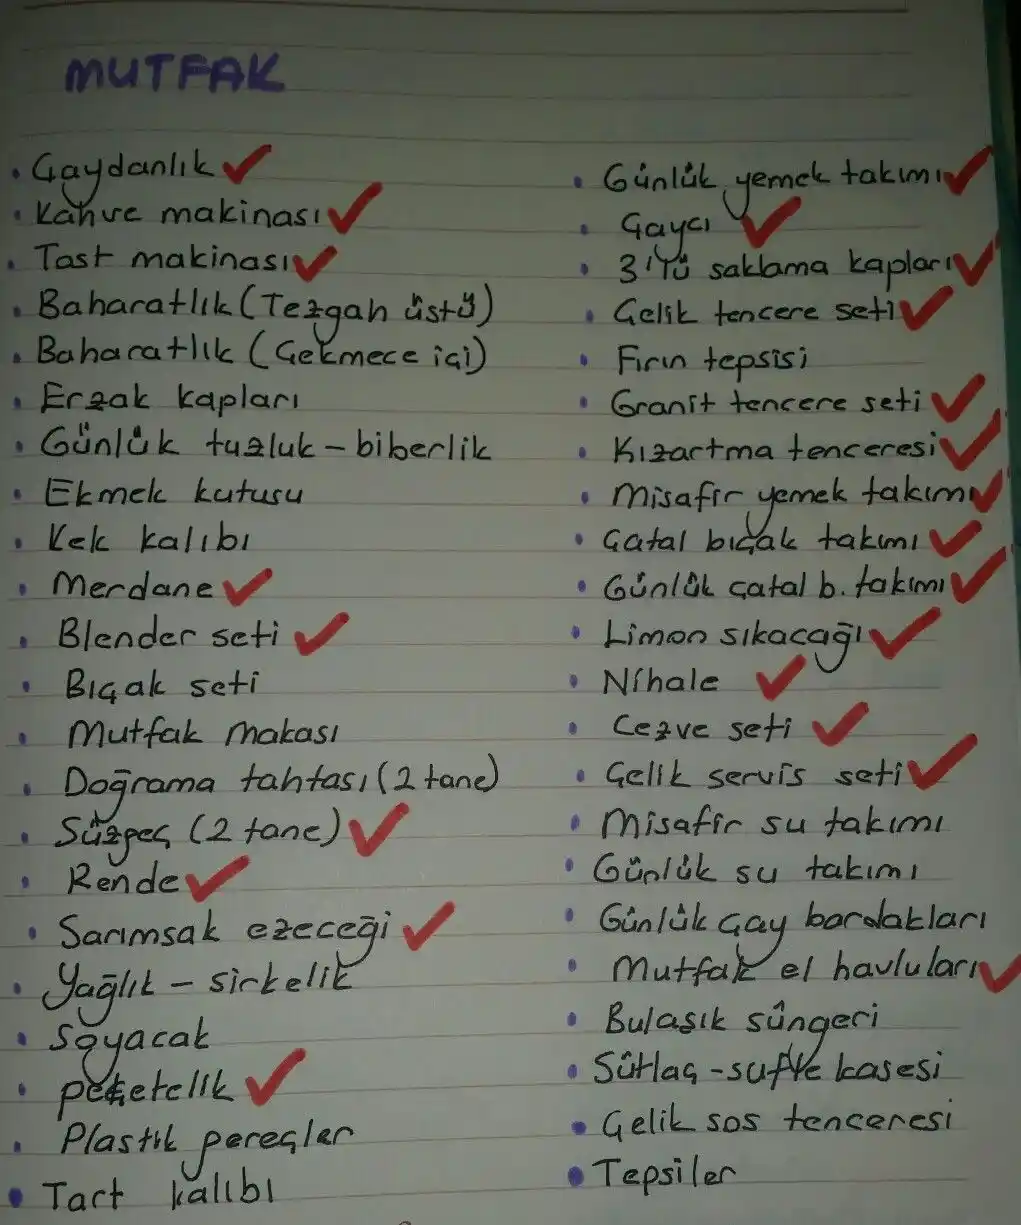 MUTFAK
• Çaydanlık ✓
• Kahve makinası ✓
• Tost makinası ✓
• Baharatlık (Tezgah üstü)
• Baharatlık (Çekmece içi)
• Erzak kapları
• Günlük tuzluk – biberlik
• Ekmek kutusu
• Kek kalıbı
• Merdane ✓
• Blender seti ✓
• Bıçak seti
• Mutfak makası
• Doğrama tahtası (2 tane)
• Süzgeç (2 tane) ✓
• Rende ✓
• Sarımsak ezeceği ✓
• Yağlık – sirkelik
• Soyacak
• Peçetelik ✓
• Plastik pereçler
• Tart kalıbı
• Günlük yemek takımı ✓
• Çaycı ✓
• 3'lü saklama kapları ✓
• Çelik tencere seti ✓
• Fırın tepsisi
• Granit tencere seti ✓
• Kızartma tenceresi ✓
• Misafir yemek takımı ✓
• Çatal bıçak takımı ✓
• Günlük çatal b. takımı ✓
• Limon sıkacağı ✓
• Nihale ✓
• Cezve seti ✓
• Çelik servis seti ✓
• Misafir su takımı
• Günlük su takımı
• Günlük çay bardakları
• Mutfak el havluları ✓
• Bulaşık süngeri
• Sütlaç - sufle kasesi
• Çelik sos tenceresi
• Tepsiler